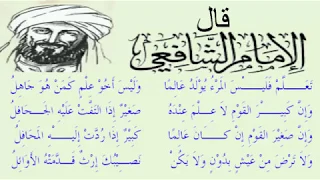 قال
الإمام الشافعي
تَعَلَّمْ فَلَيْسَ المَرْءُ يُولَدُ عَالِمًا وَلَيْسَ أَخُو عِلْمٍ كَمَنْ هُوَ جَاهِلُ
وَإِنَّ كَبِيرَ القَوْمِ لَا عِلْمَ عِنْدَهُ صَغِيرٌ إِذَا التَفَّتْ عَلَيْهِ الجَحَافِلُ
وَإِنَّ صَغِيرَ القَوْمِ إِنْ كَانَ عَالِمًا كَبِيرٌ إِذَا رُدَّتْ إِلَيْهِ المَحَافِلُ
وَلَا تَرْضَ مِنْ عَيْشٍ بِدُونٍ وَلَا يَكُنْ نَصِيبُكَ إِرْثٌ قَدَّمَتْهُ الأَوَائِلُ